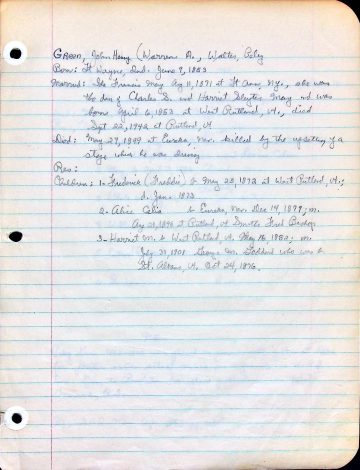 Green, John Henry (Warren A., Walter, Peley
Born: Ft Wayne, Ind. June 9, 1853
Married: Ida Frances May Aug 11, 1871 at Ft Ann, N.Y., she was
the dau of Charles S. and Harriet Slayton May and was
born April 6, 1853 at West Rutland, Vt., died
Sept 22, 1942 at Rutland, Vt
Died: May 27, 1889 at Eureka, Nev. killed by the upsetting of a
stage when he was driving
Res:
Children: 1- Frederick (Freddie) b May 23, 1872 at West Rutland, Vt.;
d. Jan. 1873
2. Alice Celia b Eureka, Nev. Dec 14, 1879; m.
Aug 21, 1895 at Rutland, Vt Fred Bishop
3- Harriet M. b West Rutland, Vt. May 16, 1882; m.
July 31, 1901 George M. who was b
St. Albans, Vt, Oct 24, 1876.